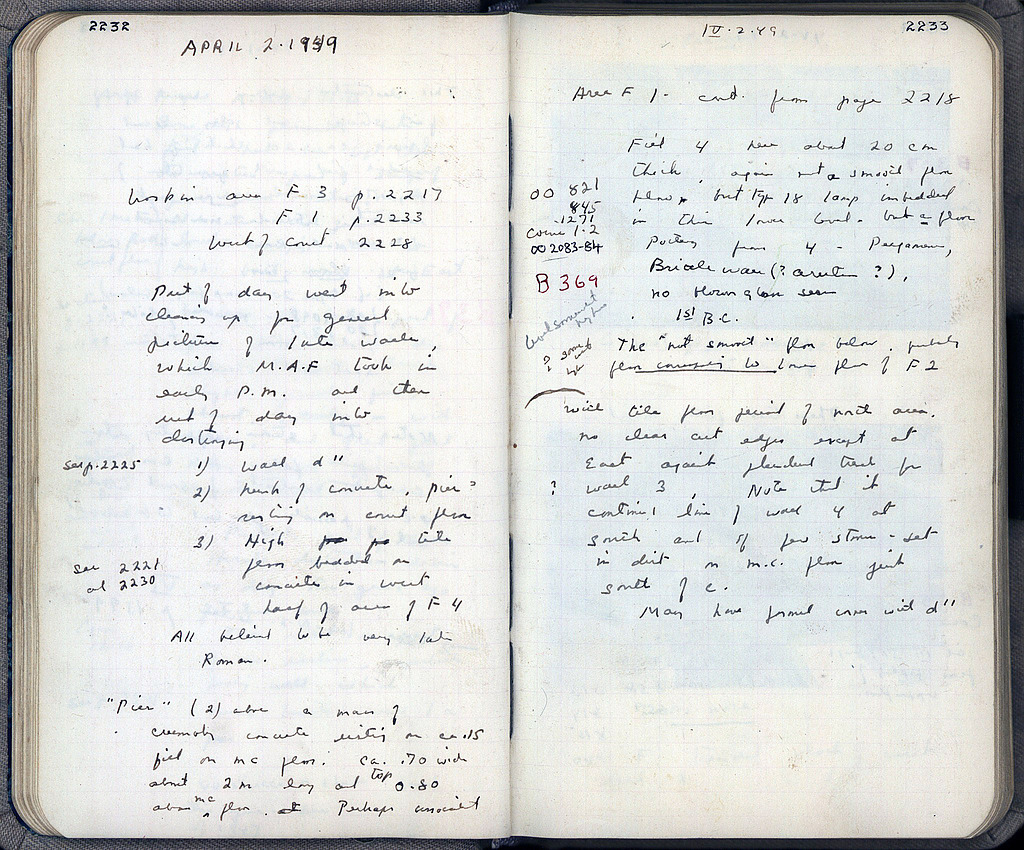 2232
APRIL 2. 1949
Work in area F 3 p. 2217
F 1 p. 2233
West of court 2228
Part of day went into
cleaning up for general
picture of late walls,
which M.A.F took in
early P.M. and then
rest of day into
destroying
see p. 2225
1) wall d"
2) hunk of concrete, "pier"
resting on court floor
3) High tile
see 2221
floor bedded on
at 2230
concrete in west
half of area of F 4
All believed to be very late
Roman.
"Pier" (2) above a mass of
crumbly concrete resting on ca .15
fill on mc floor. ca. .70 wide
about 2 m long and top 0.80
above mc floor. Perhaps associat
IV. 2. 49
2233
Area F 1 - contd. from page 2218
Fill 4 here about 20 cm
thick, again not a smooth floor
00 821
below, but type 18 lamp imbedded
845
.1271
in this lower level - but a floor
coins 1-2
00 2083-84
Pottery from 4 - Pergamene,
B 369
Brittle ware (? ?),
no blown glass seen
1st B.C.
level somewhat higher
The "not smooth" floor below, probably
?
floor corresponding to lower floor of F 2
with tile floor period of north area.
no clear cut edges except at
East against plundered trench for
?
wall 3. Note that it
continued line of wall 4 at
south and of few stones - set
in dirt on m.c. floor just
south of c.
May have formed corner with d"